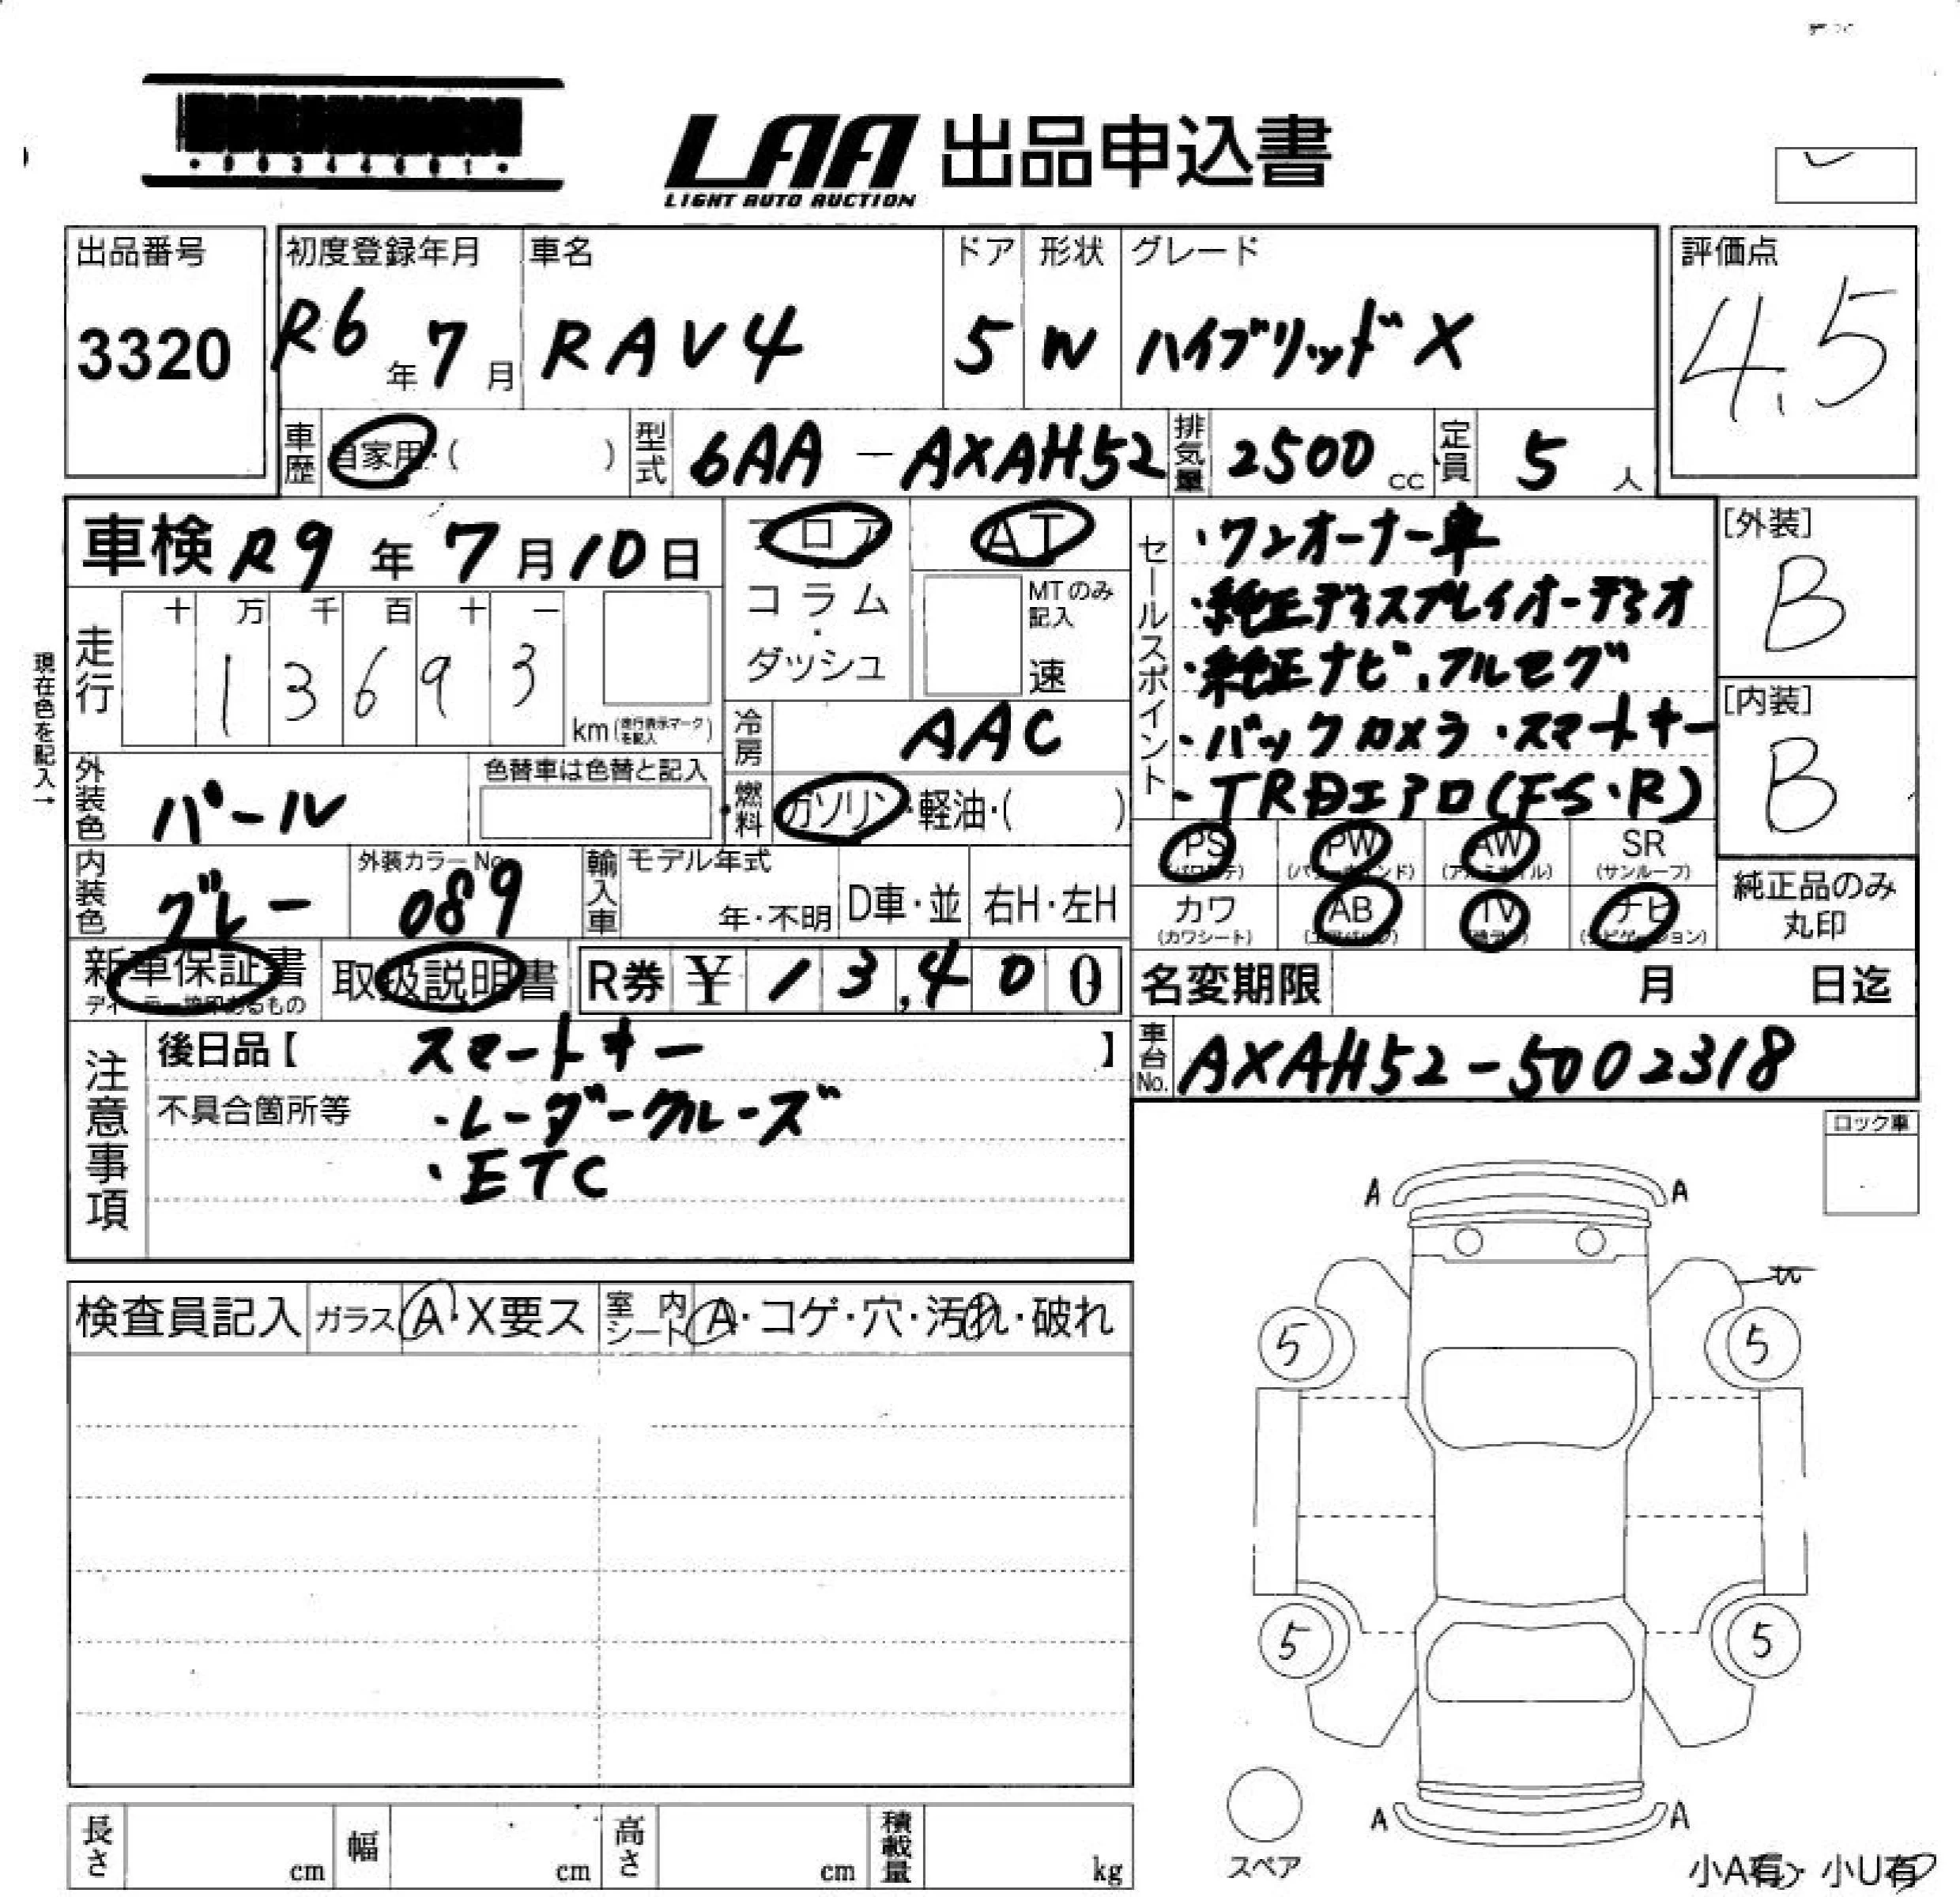 LAA 出品申込書
LIGHT AUTO AUCTION
出品番号
3320
初度登録年月
R6年7月
車名
RAV4
ドア
5
形状
W
グレード
ハイブリッドX
評価点
4.5
車歴
自家用・( )
型式
6AA-AXAH52
排気量
2500cc
定員
5人
車検 R9年7月10日
フロア
コラム・ダッシュ
AT
MTのみ記入
速
走行
十 万 千 百 十 一
1 3 6 9 3
km(走行表示マークを記入)
現在色を記入→
冷房
AAC
外装色
パール
色替車は色替と記入
燃料
ガソリン・軽油・( )
内装色
グレー
外装カラーNo.
089
輸入車
モデル年式
年・不明
D車・並
右H・左H
新車保証書
取扱説明書
R券 ¥13,400
セールスポイント
・ワンオーナー車
・純正ディスプレイオーディオ
・純正ナビ・フルセグ
・バックカメラ・スマートキー
・TRDエアロ(F・S・R)
[外装]
B
[内装]
B
PS
PW
AW
SR
(サンルーフ)
カワ
(カワシート)
AB
TV
ナビ
(ナビゲーション)
純正品のみ丸印
名変期限 月 日迄
車台No.
AXAH52-5002318
注意事項
後日品【 スマートキー 】
不具合箇所等
・レーダークルーズ
・ETC
ロック車
検査員記入
ガラス A・X要ス
室内シート A・コゲ・穴・汚れ・破れ
A A
5 5
5 5
A A
スペア
小A有 小U有
長さ cm
幅 cm
高さ cm
積載量 kg